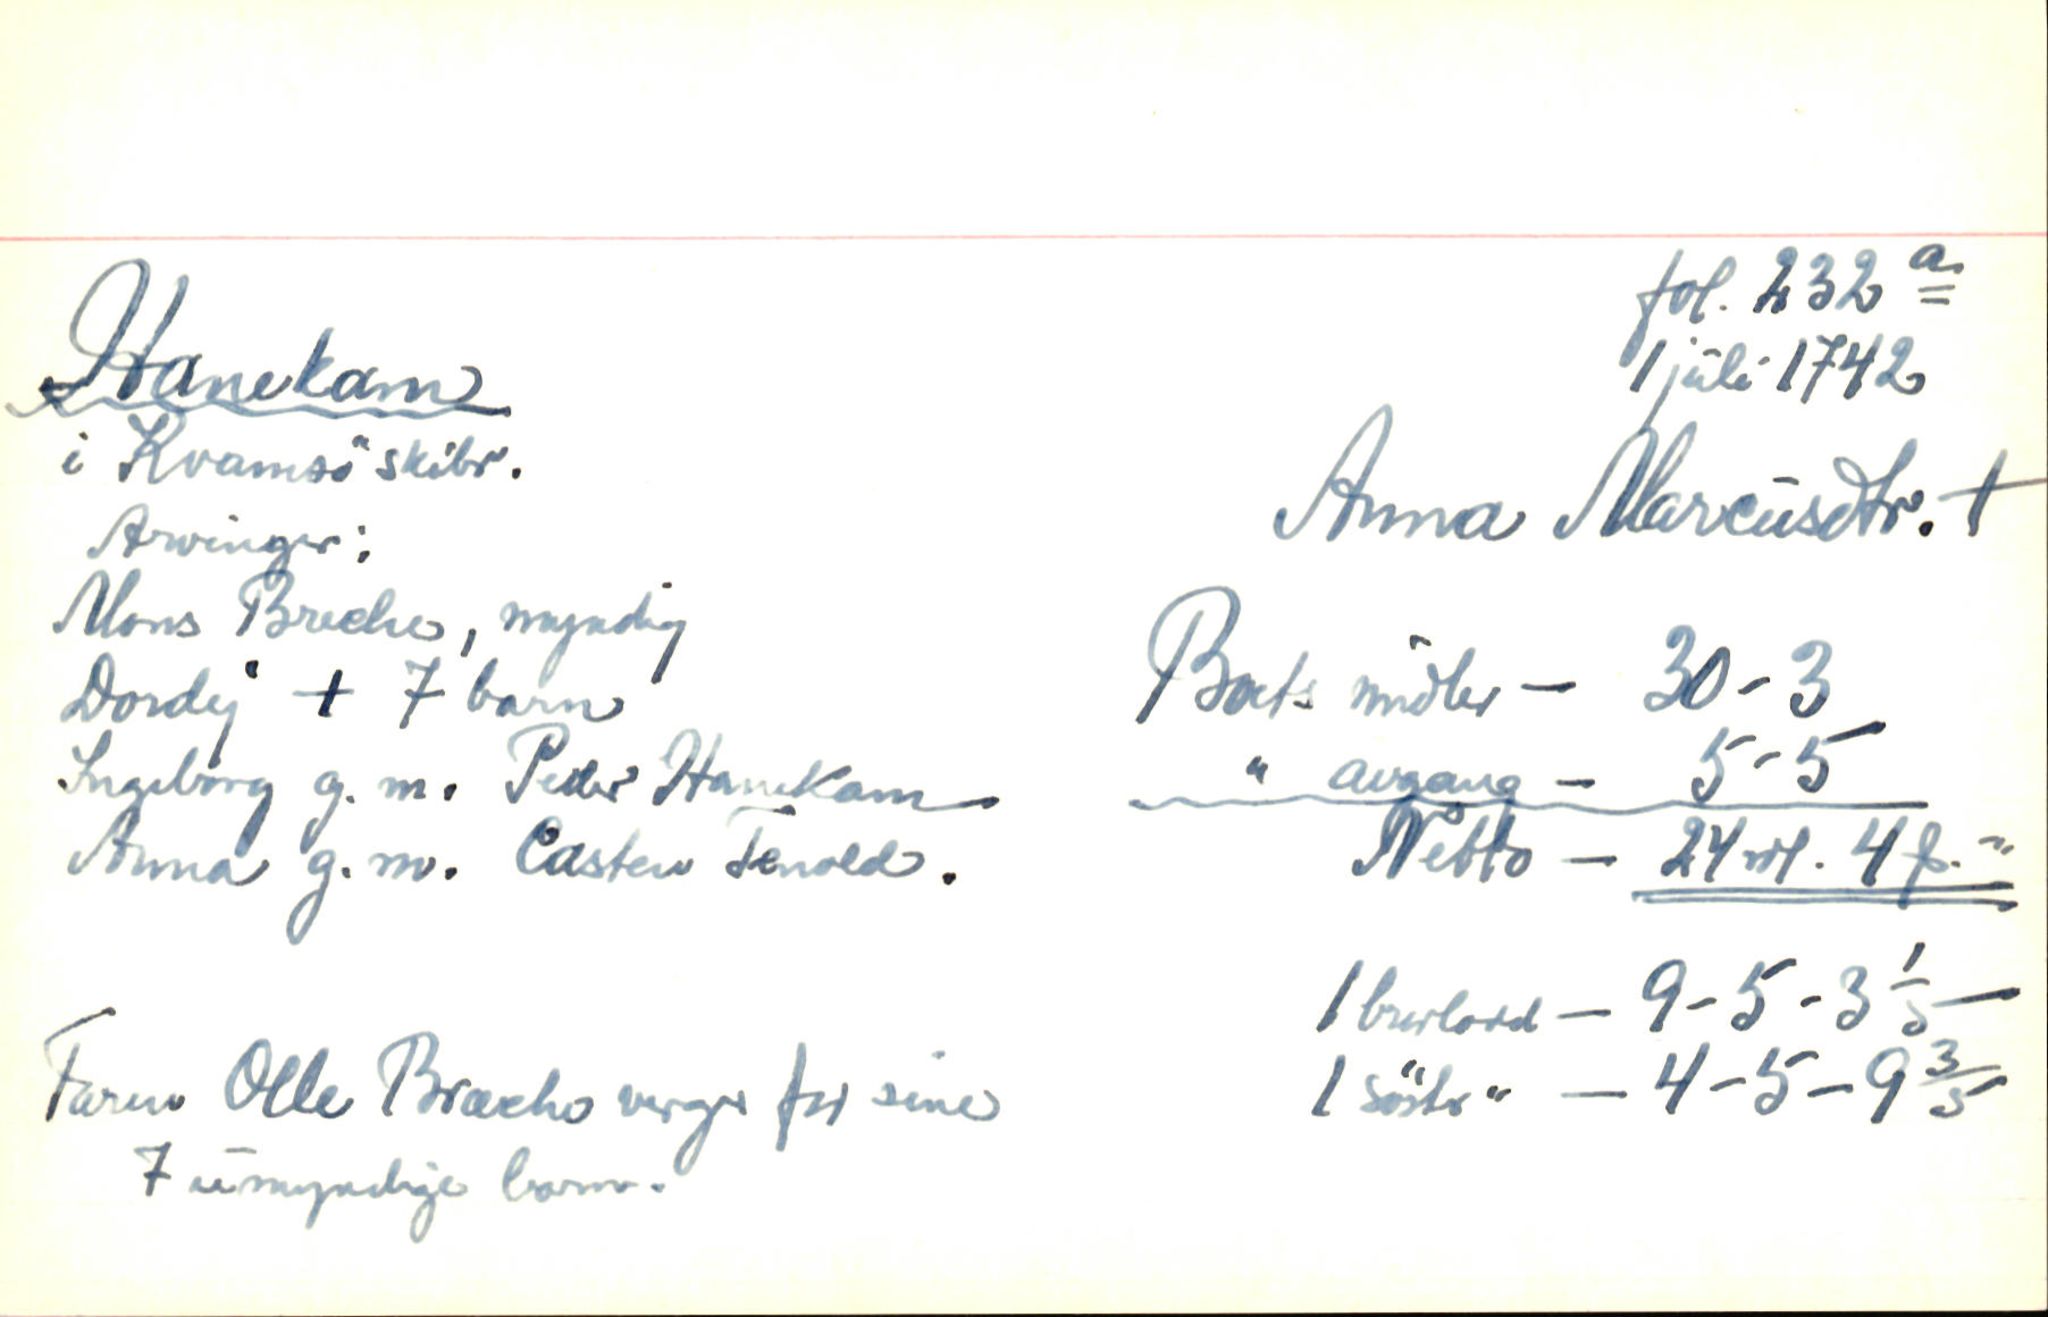 fol. 232 a
1 juli 1742
Hanekam
i Kvamsö skibr.
Anna Marcusdtr. +
Arvinger:
Mons Breche, myndig
Dordej + 7 barn
Ingeborg g. m. Peder Hanekam
Anna g. m. Casten Tenold.
Boets midler — 30 - 3
" avgang — 5 - 5
Netto — 24 rd. 4 ß. "
1 brorlodd — 9 - 5 - 3 1/5
1 söster " — 4 - 5 - 9 3/5
Faren Olle Bræche verge for sine
7 umyndige barn.